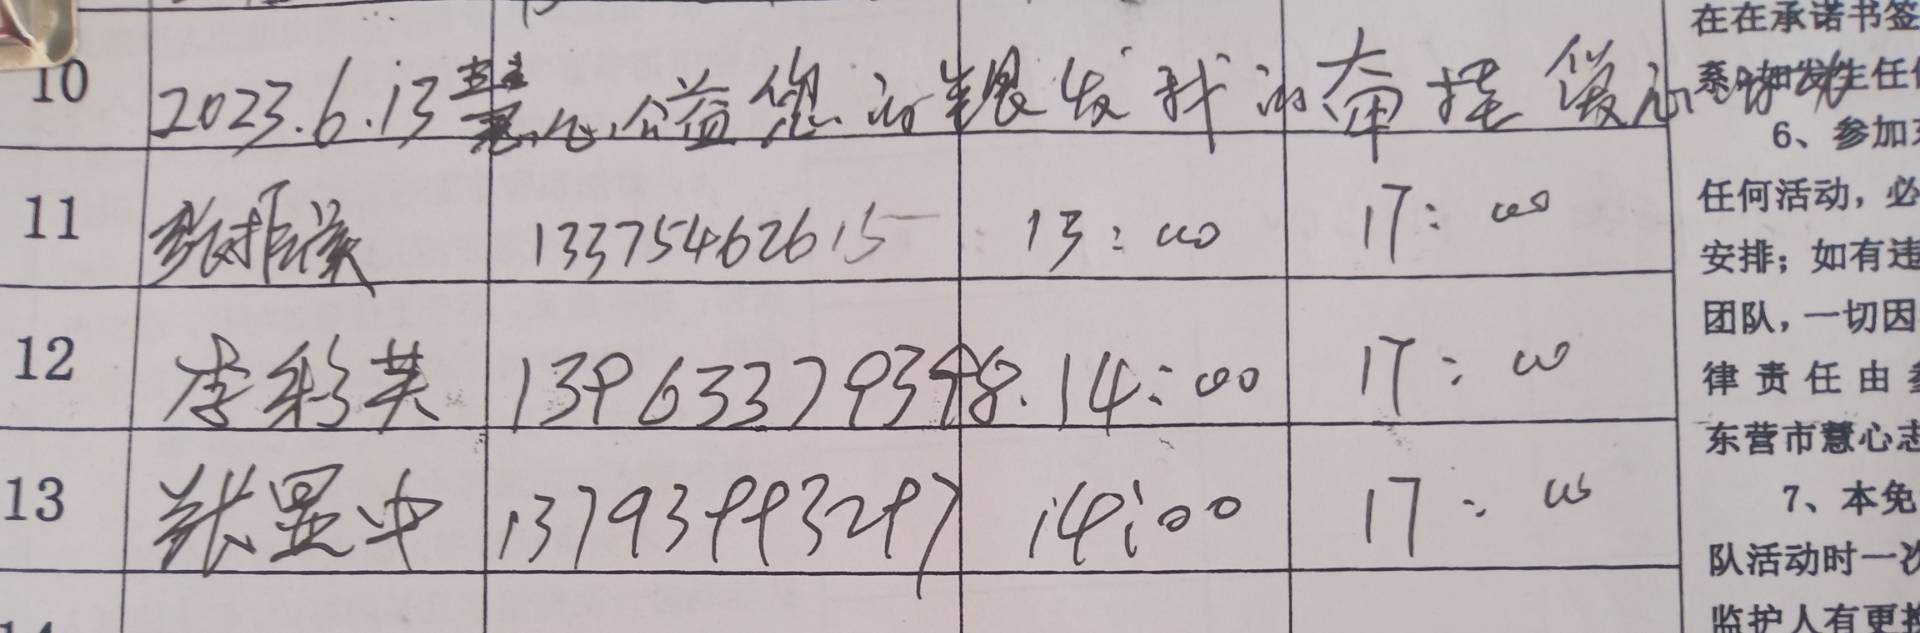 在在承诺书签
10 2023.6.13慧心公益您的银发我的奋 
系。如发生任
6、参加
11 13375462615 13:00 17:00
任何活动，必
安排；如有违
12 李彩英 13963379398. 14:00 17:00
团队，一切因
律责任由
13 中 13793993297 14:00 17:00
东营市慧心志
7、本免
队活动时一次
14
监护人有更